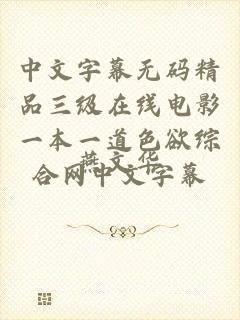 中文字幕无码精
品三级在线电影
一本一道色欲综
燕文华
合网中文字幕